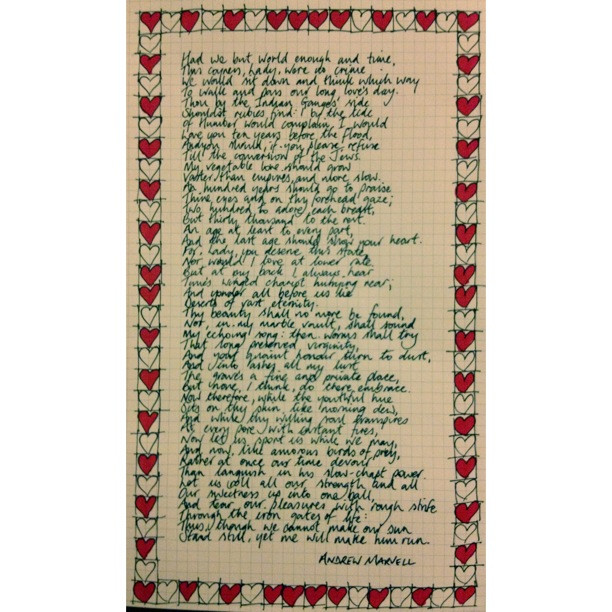 Had we but world enough and time,
This coyness, Lady, were no crime
We would sit down and think which way
To walk and pass our long love's day.
Thou by the Indian Ganges' side
Shouldst rubies find: I by the tide
of Humber would complain. I would
Love you ten years before the Flood,
And you should, if you please, refuse
Till the conversion of the Jews.
My vegetable love should grow
Vaster than empires, and more slow.
An hundred years should go to praise
Thine eyes and on thy forehead gaze;
Two hundred to adore each breast,
But thirty thousand to the rest.
An age at least to every part,
And the last age should show your heart.
For, Lady, you deserve this state,
Nor would I love at lower rate.
But at my back I always hear
Time's winged chariot hurrying near;
And yonder all before us lie
Deserts of vast eternity.
Thy beauty shall no more be found,
Nor, in my marble vault, shall sound
My echoing song: then worms shall try
That long preserved virginity,
And your quaint honour turn to dust,
And into ashes all my lust.
The grave's a fine and private place,
But none, I think, do there embrace.
Now therefore, while the youthful hue
Sits on thy skin like morning dew,
And while thy willing soul transpires
At every pore with instant fires,
Now let us sport us while we may,
And now, like amorous birds of prey,
Rather at once our time devour
Than languish in his slow-chapt power.
Let us roll all our strength and all
Our sweetness up into one ball,
And tear our pleasures with rough strife
Through the iron gates of life:
Thus, though we cannot make our sun
Stand still, yet we will make him run.
ANDREW MARVELL